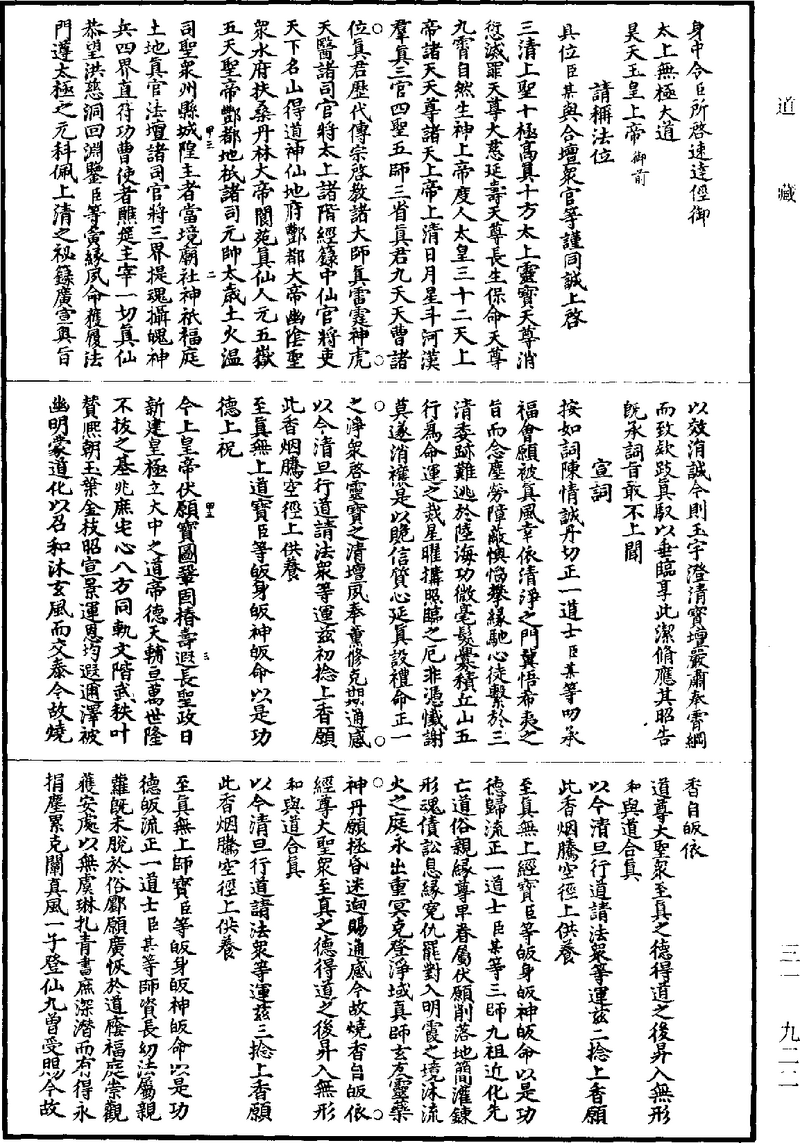 道藏
身中令臣所啓速達徑御
太上無極大道
昊天玉皇上帝御前
請稱法位
具位臣某與合壇衆官等謹同誠上啓
三清上聖十極高真十方太上靈寶天尊消
愆滅罪天尊大慈延壽天尊長生保命天尊
九霄自然生神上帝度人太皇三十二天上
帝諸天天尊諸天上帝上清日月星斗河漢
羣真三官四聖五師三省真君九天天曹諸
位真君歷代傳宗啓教諸大師真雷霆神虎
天醫諸司官將太上諸階經籙中仙官將吏
天下名山得道神仙地府酆都大帝幽陰聖
衆水府扶桑丹林大帝閬苑真仙人元五嶽
五天聖帝酆都地祇諸司元帥太歲土火溫
司聖衆州縣城隍主者當境廟社神祇福庭
土地真官法壇諸司官將三界提魂攝魄神
兵四界直符功曹使者醮筵主宰一切真仙
恭望洪慈洞回淵鑒臣等夤緣夙命獲履法
門遵太極之元科佩上清之祕籙廣宣奧旨
以效消誠今則玉宇澄清寶壇嚴肅奉霄綱
而致欵跂真馭以垂臨享此潔脩應其昭告
既承詞旨敢不上聞
宣詞
按如詞陳情誠丹切正一道士臣某等叨承
福會願被真風幸依清淨之門冀悟希夷之
旨而念塵勞障蔽懊惱攀緣馳心徒繫於三
清委跡難逃於陸海功微毫髮釁積丘山五
行爲命運之栽星曜搆照臨之厄非憑懺謝
莫遂消禳是以賝信質心延真設禮命正一
之淨衆啓靈寶之清壇夙奉薰修克期通感
以今清旦行道請法衆等運茲初捻上香願
此香烟騰空徑上供養
至真無上道寶臣等皈身皈神皈命以是功
德上祝
今上皇帝伏願寶圖鞏固椿壽遐長聖政日
新建皇極立大中之道帝德天輔亘萬世隆
不拔之基兆庶宅心八方同軌文階武秩叶
贊熙朝玉葉金枝昭宣景運恩均遐邇澤被
幽明蒙道化以召和沐玄風而交泰今故燒
香自皈依
道尊大聖衆至真之德得道之後昇入無形
和與道合真
以今清旦行道請法衆等運茲二捻上香願
此香烟騰空徑上供養
至真無上經寶臣等皈身皈神皈命以是功
德歸流正一道士臣某等三師九祖近化先
亡道俗親緣尊卑眷屬伏願削落地簡灌鍊
形魂債訟息緣寃仇罷對入明霞之境沐流
火之庭永出重冥克登淨域真師玄友靈藥
神丹願拯昏迷迴賜通感今故燒香自皈依
經尊大聖衆至真之德得道之後昇入無形
和與道合真
以今清旦行道請法衆等運茲三捻上香願
此香烟騰空徑上供養
至真無上師寶臣等皈身皈神皈命以是功
德皈流正一道士臣某等師資長幼法屬親
蘿既未脫於俗鄽願廣恢於道廕福庭崇觀
獲安處以無虞琳札青書庶深潛而有得永
捐塵累克闡真風一子登仙九曾受賜今故
三一 九二二